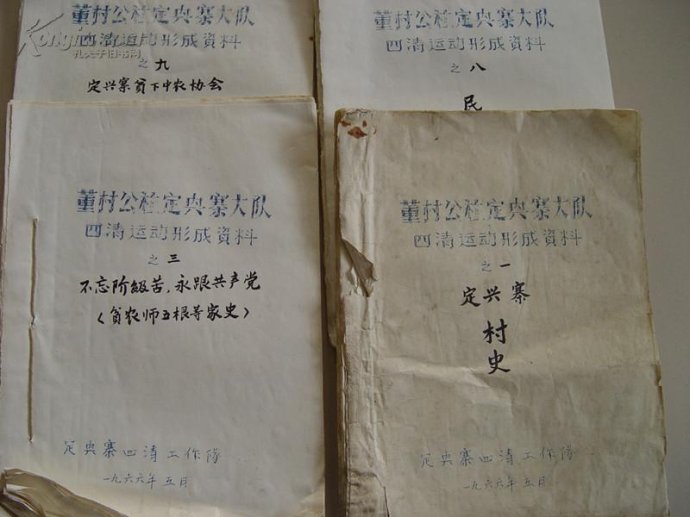 董村公社定兴寨大队
四清运动形成資料
之九
定兴寨贫下中农协会
董村公社定兴寨大队
四清运动形成資料
之八
民
董村公社定兴寨大队
四清运动形成資料
之三
不忘阶級苦，永跟共产党
（贫农师五根等家史）
定兴寨四清工作隊
一九六六年五月
董村公社定兴寨大队
四清运动形成資料
之一
定兴寨
村
史
定兴寨四清工作隊
一九六六年五月